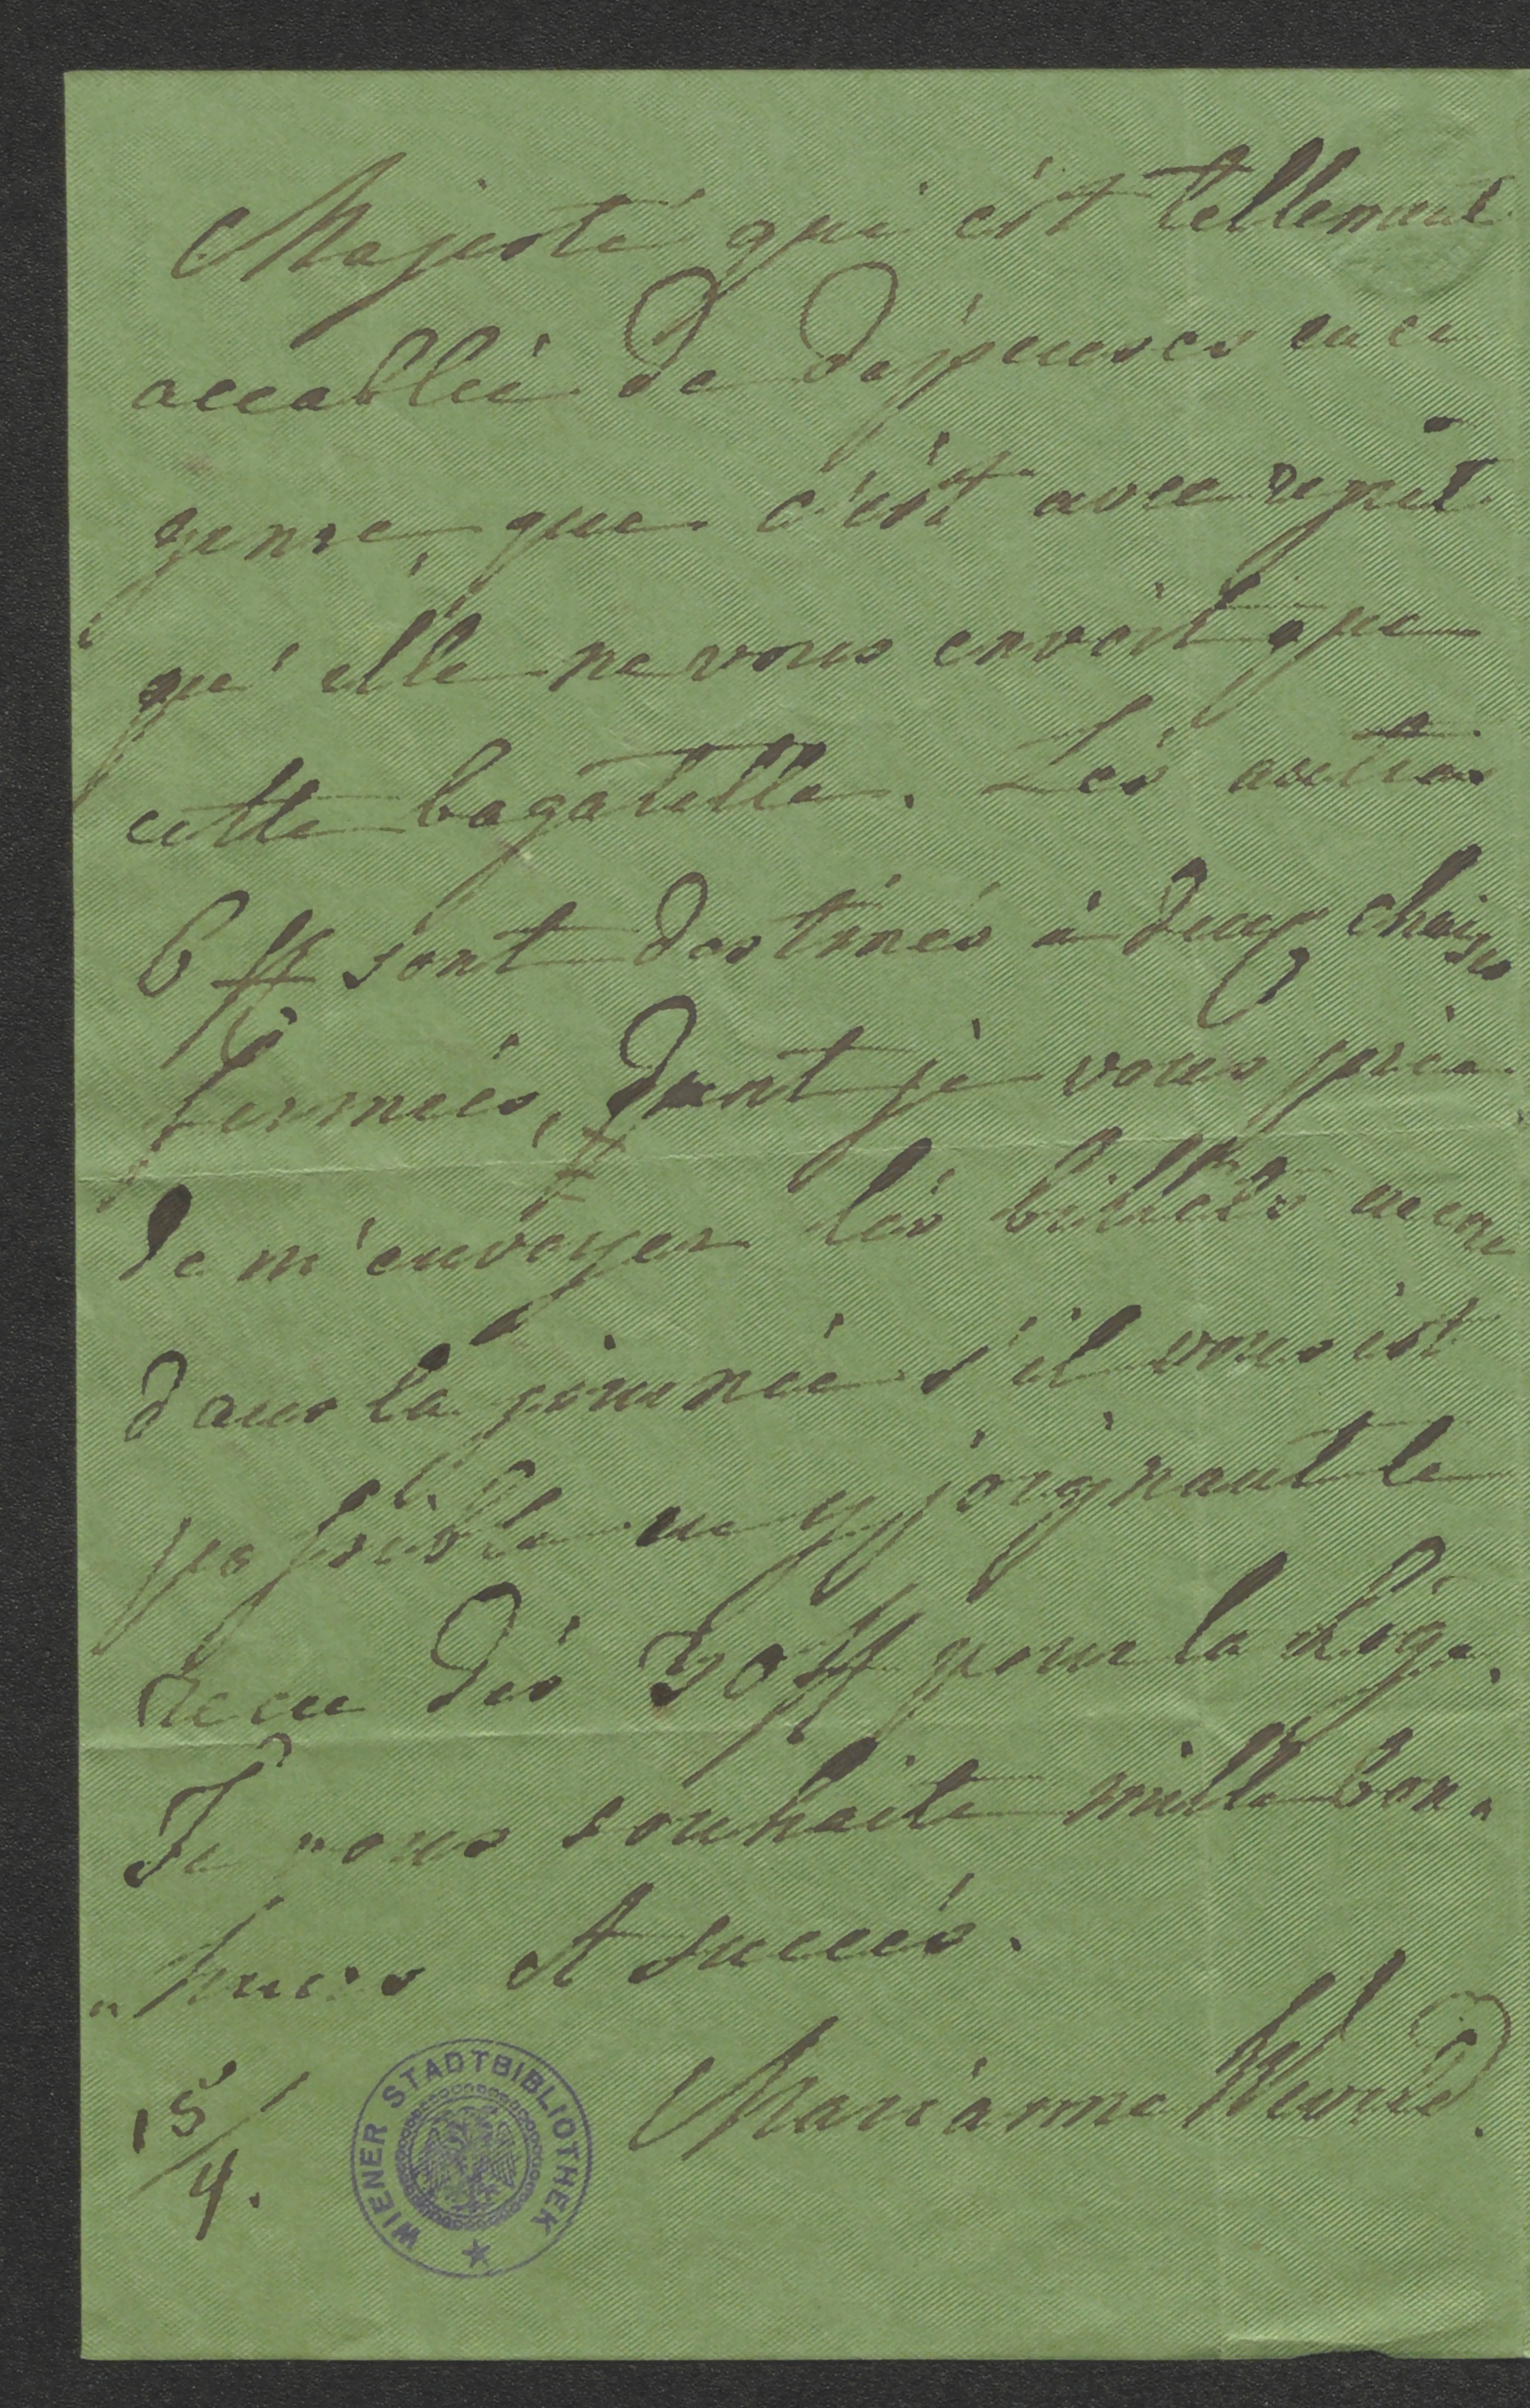 Majesté qui ést tellement
accablée de dépenses en ce
genre, que c'ést avec regrét
qu'elle ne vous envoit que
cette bagatelle. Lés autres
6 ff sont destinés à deux chaises
fermées, dont je vous prie
de m'envoyer lés billéts
dans la journée s'il vous ést
possible en y joignant le
recu dés 30 ff pour la Loge.
Je vous souhaite mille bon-
-heurs et succés.
15/4.
Marianne
WIENER STADTBIBLIOTHEK